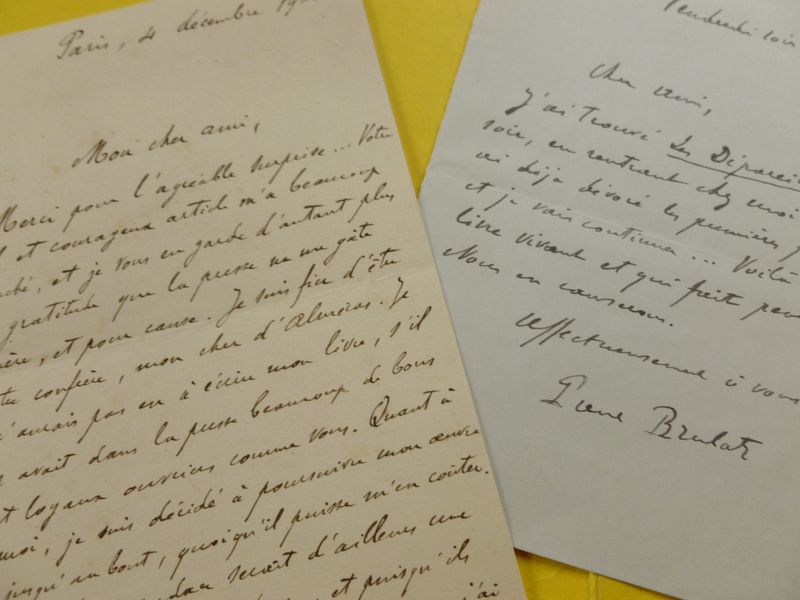 Paris, 4 décembre
Mon cher ami,
Merci pour l'agréable surprise... Votre
et courageux article m'a beaucoup
et je vous en garde d'autant plus
gratitude que la presse ne me gâte
et pour cause. Je suis fier d'être
confrère, mon cher d'Almeras. Je
n'aurais pas eu à écrire mon livre, s'il
avait dans la presse beaucoup de bons
et loyaux ouvriers comme vous. Quant à
moi, je suis décidé à poursuivre mon œuvre
jusqu'au bout, quoiqu'il puisse m'en coûter.
serait d'ailleurs une
et puisqu'ils
j'ai
Vendredi soir
Cher ami,
J'ai trouvé Les
soir, en rentrant chez moi
ai déjà dévoré les premières
et je vais continuer... Voilà
livre vivant et qui fait
Nous en causerons.
Affectueusement à vous
Pierre Brulat